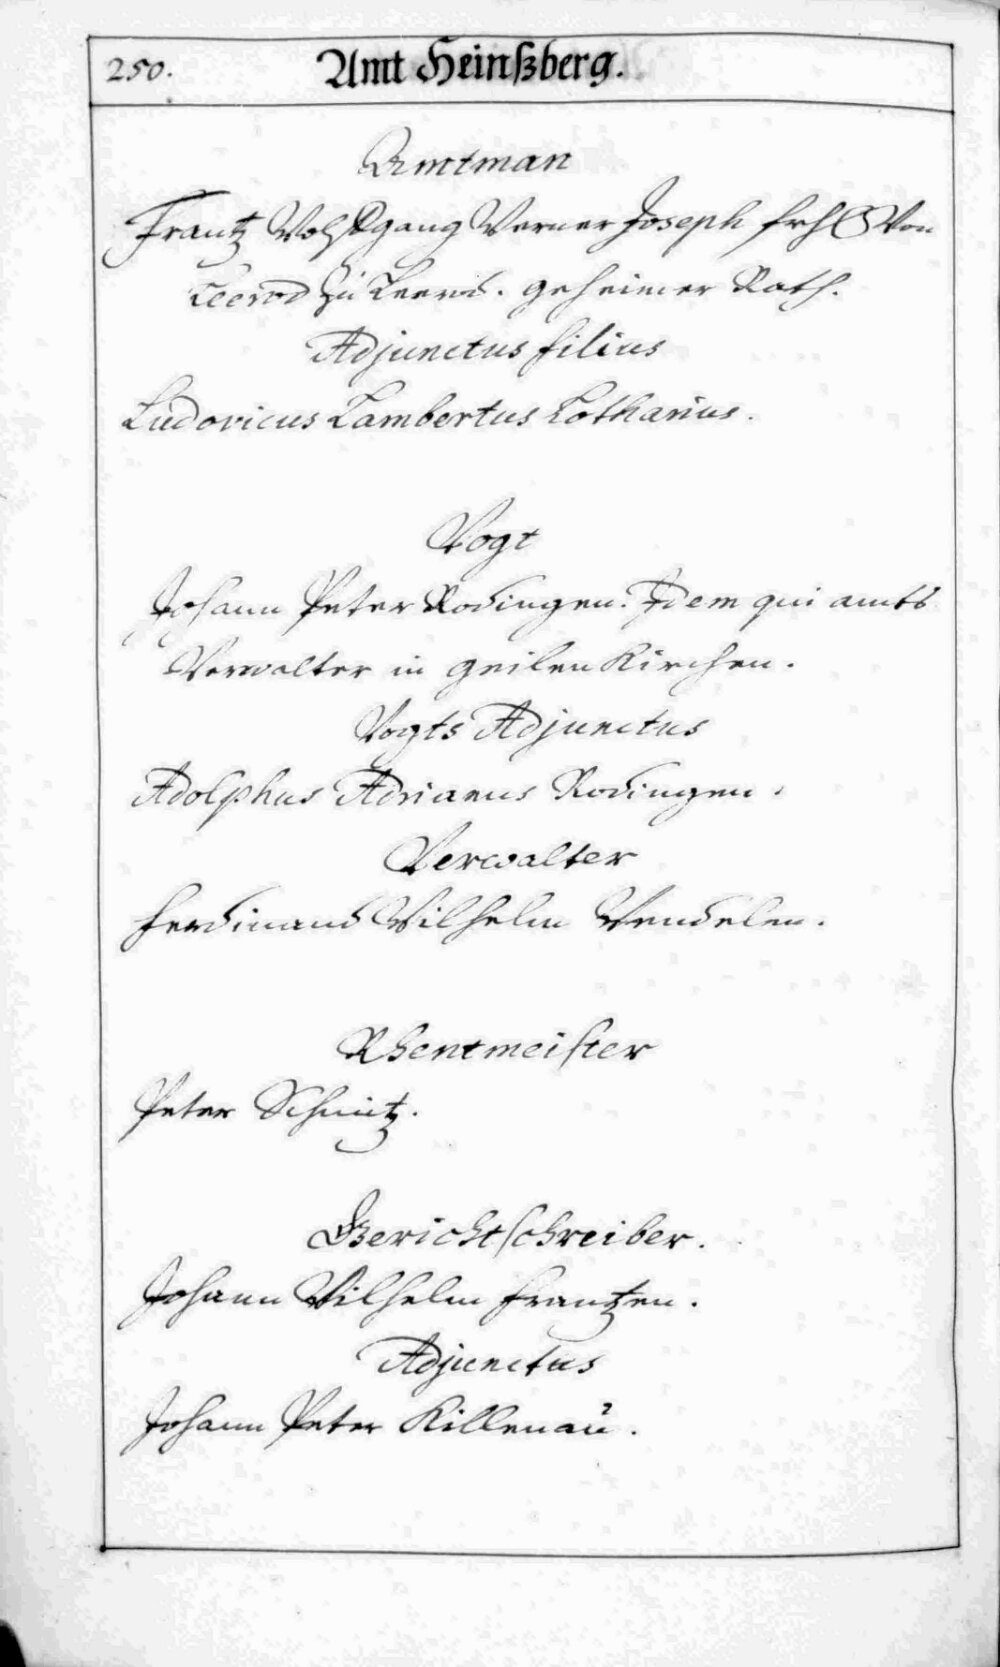 250.
Amt Heinßberg.
Amtman
Frantz Wolffgang Werner Joseph frh Von
Leerod zu Leerod. geheimer Rath.
Adjunctus filius
Ludovicus Lambertus Lotharius.
Vogt
Johann Peter Rodingen. Idem qui amts
Verwalter in geilenKirchen.
Vogts Adjunctus
Adolphus Adrianus Rodingen.
Verwalter
Ferdinand Wilhelm Wendelen.
Rhentmeister
Peter Schmitz.
Gerichtschreiber.
Johann Wilhelm Frantzen.
Adjunctus
Johann Peter